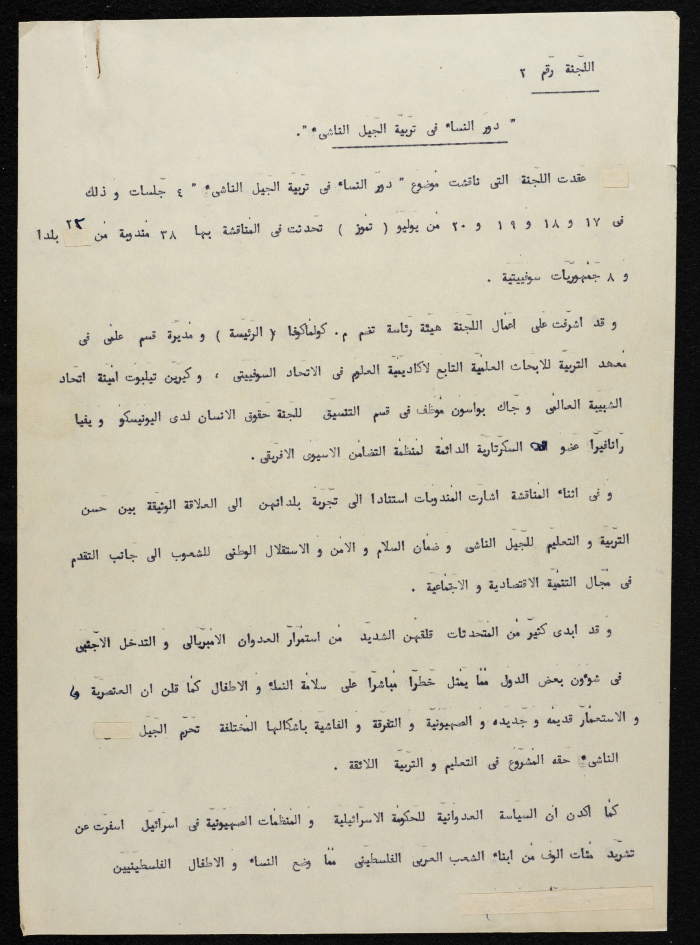 اللجنة رقم ٢
" دور النساء فى تربية الجيل الناشىء ".
عقدت اللجنة التى ناقشت موضوع " دور النساء فى تربية الجيل الناشىء " ٤ جلسات و ذلك
فى ١٧ و ١٨ و ١٩ و ٢٠ من يوليو ( تموز ) تحدثت فى المناقشة بها ٣٨ مندوبة من بلدا
و ٨ جمهوريات سوفييتية .
و قد اشرفت على اعمال اللجنة هيئة رئاسة تضم م. كولماكوفا ( الرئيسة ) و مديرة قسم علمى فى
معهد التربية للابحاث العلمية التابع لاكاديمية العلوم فى الاتحاد السوفييتى ، و كيرين تيلبوت امينة اتحاد
الشبيبة العالمى و جاك بواسون موظف فى قسم التنسيق للجنة حقوق الانسان لدى اليونيسكو و يفيا
رانافيرا عضو السكرتارية الدائمة لمنظمة التضامن الاسيوى الافريقى .
و فى اثناء المناقشة اشارت المندوبات استنادا الى تجربة بلدانهن الى العلاقة الوثيقة بين حسن
التربية و التعليم للجيل الناشى و ضمان السلام و الامن و الاستقلال الوطنى للشعوب الى جانب التقدم
فى مجال التنمية الاقتصادية و الاجتماعية .
و قد ابدى كثير من المتحدثات قلقهن الشديد من استمرار العدوان الامبريالى و التدخل الاجنبى
فى شؤون بعض الدول مما يمثل خطرا مباشرا على سلامة النساء و الاطفال كما قلن ان العنصرية
و الاستعمار قديمه و جديده و الصهيونية و التفرقة و الفاشية باشكالها المختلفة تحرم الجيل
الناشىء حقه المشروع فى التعليم و التربية اللائقة .
كما اكدن ان السياسة العدوانية للحكومة الاسرائيلية و المنظمات الصهيونية فى اسرائيل اسفرت عن
تشريد مئات الوف من ابناء الشعب العربى الفلسطينى مما وضع النساء و الاطفال الفلسطينيين